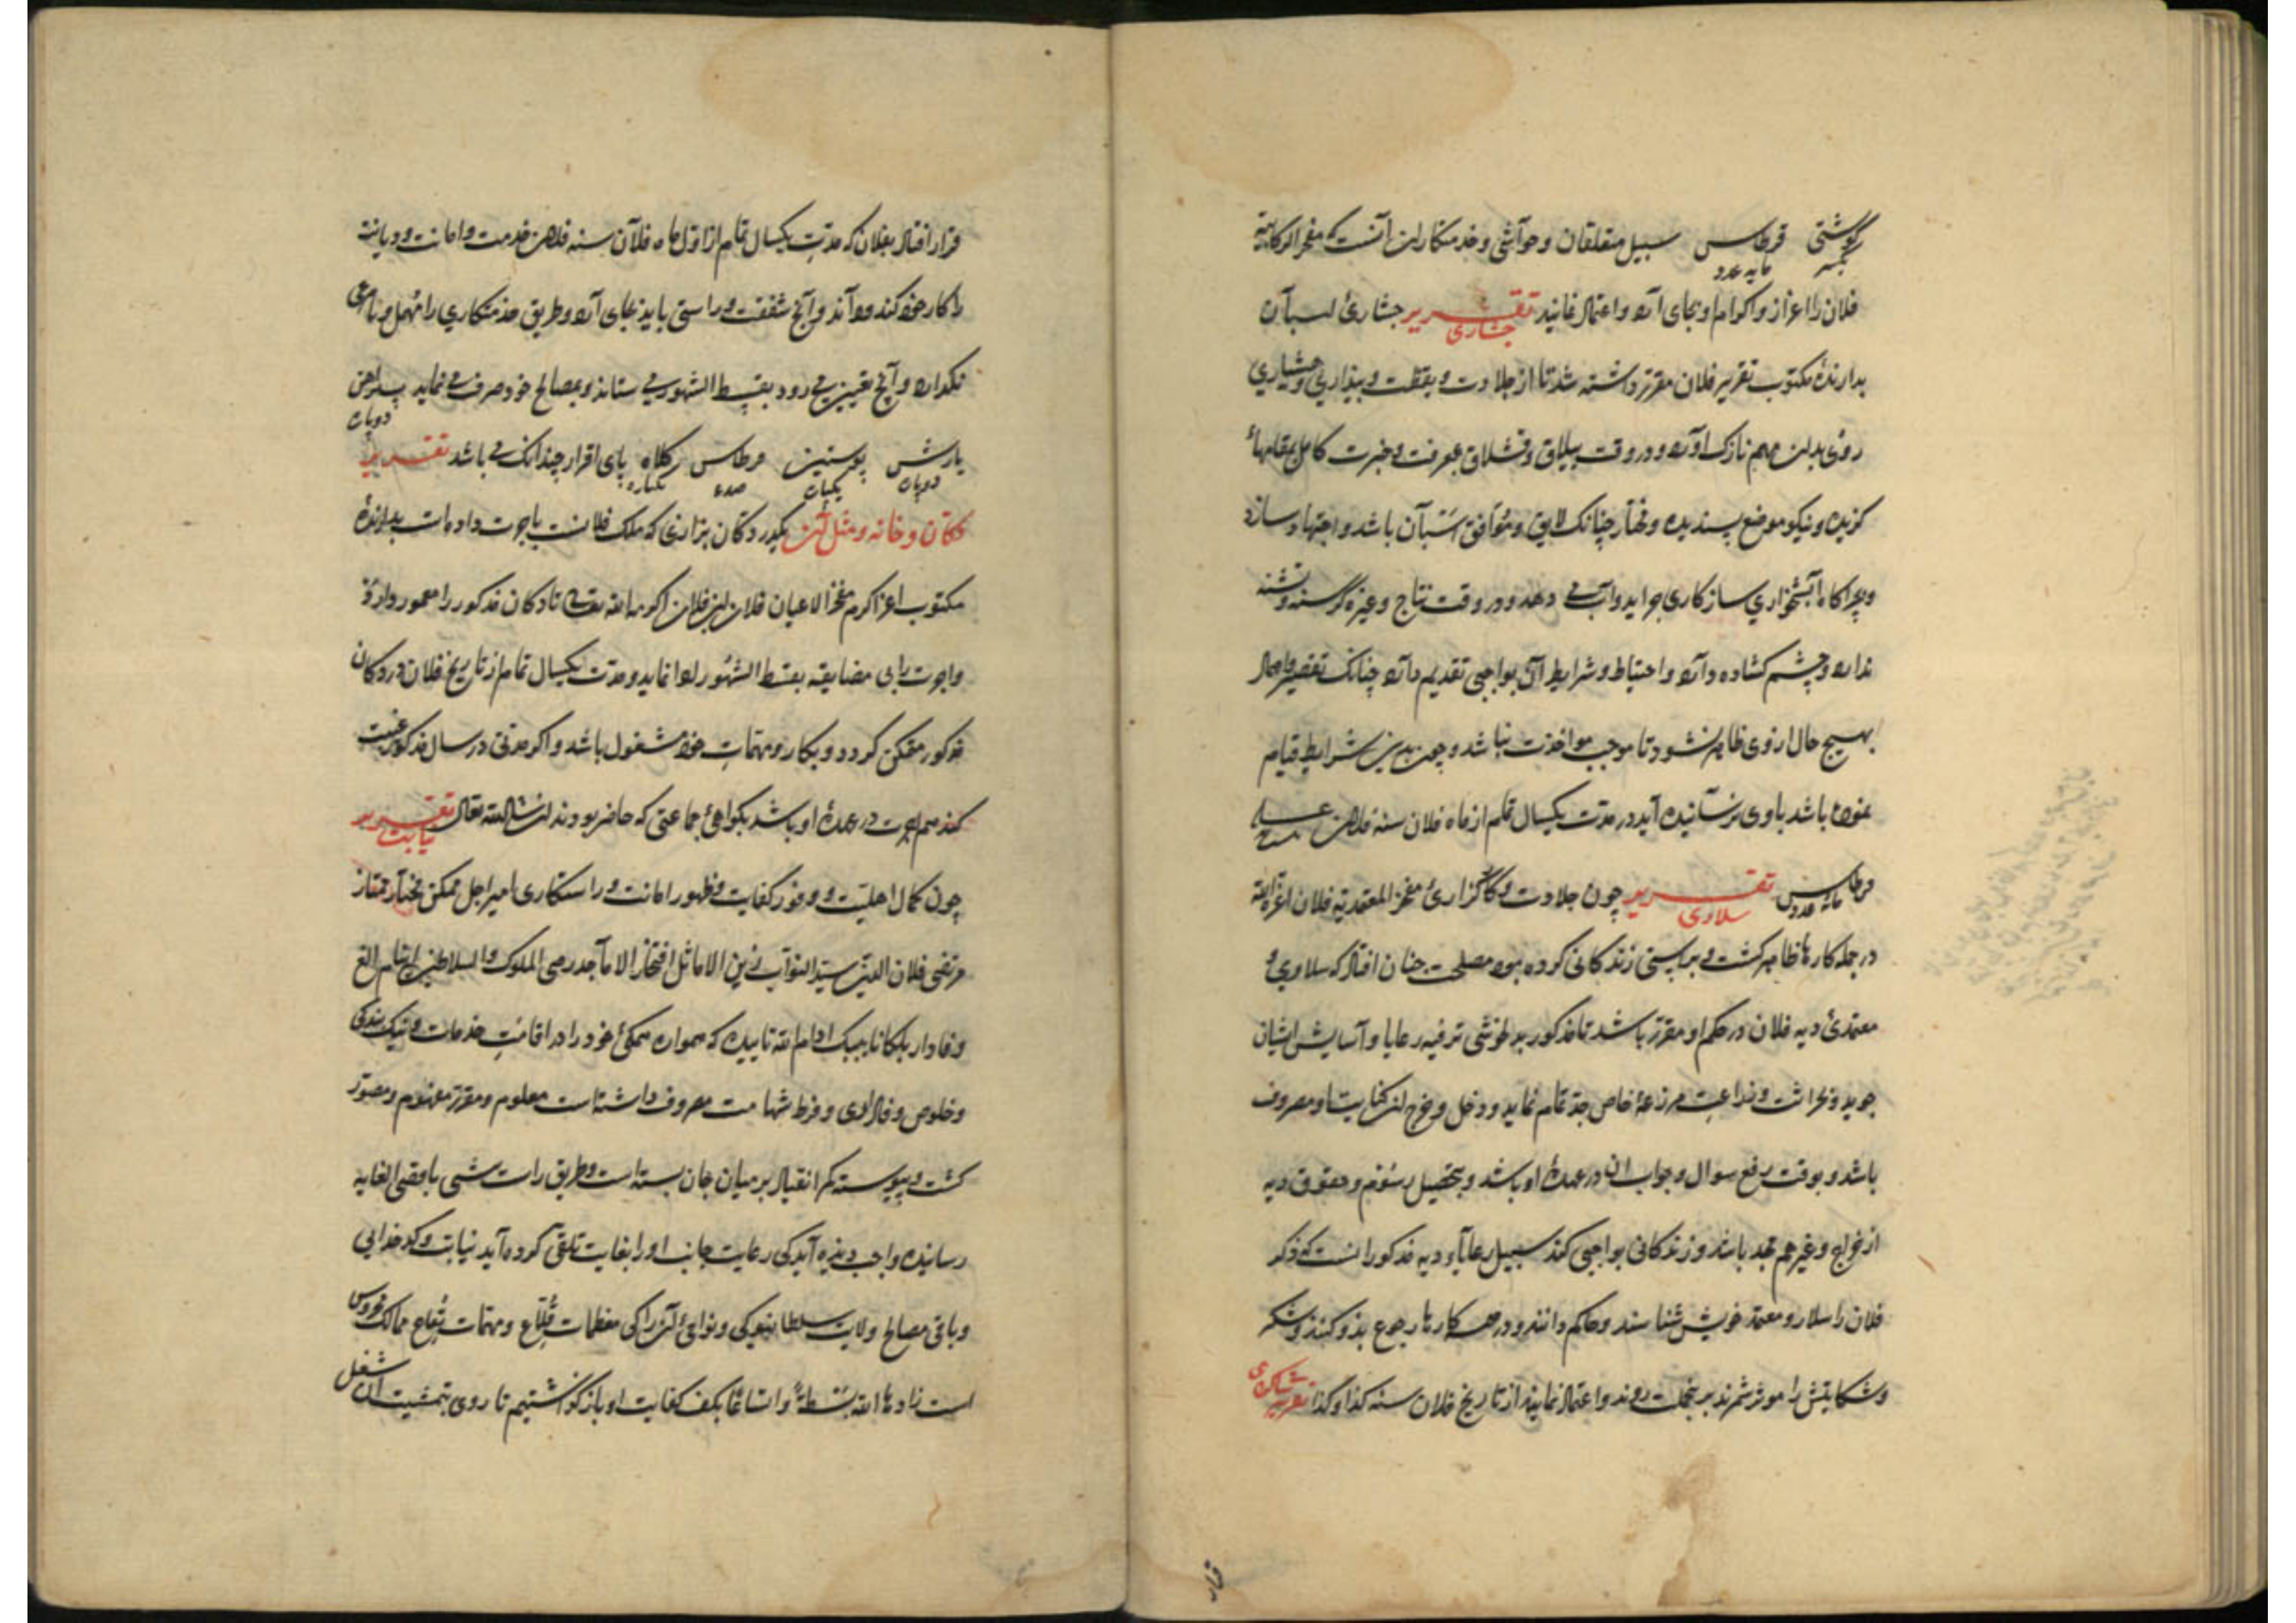 گوشتی قرطاس سبیل متعلقان و حواشی و خدمتکاران آنست که مفخر الوکلایه
بجسه مایه عدد
فلان را اعزاز و اکرام و بجای آرد و اعتماد نمایند تقریر جشاری جشاری اسبان
بدارندهٔ مکتوب تقریر فلان مقرر داشته شد تا از جلادت و یقظت و بیداری و هشیاری
روی بدان مهم نازک آورد و در وقت ییلاق و قشلاق بمعرفت و خبرت کامل بمقامهاء
گزیده و نیکو موضع پسندیده و مختار چنانک لایق و موافق اسبان باشد و اجتهاد سازد
و بچراگاه آبشخواری سازگاری چراید و آب می دهد و در وقت نتاج و غیره گرسنه و تشنه
ندارد و چشم گشاده دارد و احتیاط و شرایط آن بواجبی تقدیم دارد چنانک تقصیر و اهمال
بهیچ حال از وی ظاهر نشود تا موجب مواخذت نباشد و چون بدین شرایط قیام
نموده باشد باوی رسانیده آید در مدت یکسال تمام از ماه فلان سنه فلان
قرطاس مایه عدد تقریر سلاری چون جلادت و کارگزاری مفخر المعتمدیه فلان اعزه الله
در جمله کارها ظاهر گشت و براستی زندگانی کرده بود مصلحت چنان افتاد که سلاری و
معتمدی دیه فلان در حکم او مقرر باشد تا مذکور بدلخوشی ترفیه رعایا و آسایش ایشان
جوید و بحراثت و زراعت مزرعهٔ خاص جد تمام نماید و دخل و خرج آن کنایت او مصروف
باشد و بوقت رفع سوال و جواب آن در عهدهٔ او باشد و بتحصیل رسوم و حقوق دیه
از خراج و غیرهم مجد باشد و زندگانی بواجبی کند سبیل رعایاء دیه مذکور آنست که مذکر
فلان را سالار و معتمد خویش شناسند و حاکم دانند و در همه کارها رجوع بذو کنند و شکر
و شکایتش را موثر شمرند برینجملت روند و اعتماد نمایند از تاریخ فلان سنه کذا و کذا تقریر شاکری
قرار افتاد بفلان که مدت یکسال تمام از اول ماه فلان سنه فلان خدمت و امانت و دیانت
را کار خود کند و داند و آنچ شفقت و راستی باید بجای آرد و طریق خدمتکاری را مهمل و نامرعی
نگذارد و آنچ تعیین می رود بقسط الشهور می ستاند و بمصالح خود صرف می نماید پیراهن
دوپاره
بارش پوستین قرطاس کلاه پای افزار چندانک می باشد تقریر
دوپاره یکپاره صدعـ یکپاره
دکان و خانه و مثل آن بگیرد دکان بزازی که ملک فلانست باجرت داده است بدارندهٔ
مکتوب اعز اکرم مفخر الاعیان فلان ابن فلان اکرمه الله تعالی تا دکان مذکور را معمور دارد
و اجرت را بی مضایقه بقسط الشهور ادا نماید و مدت یکسال تمام از تاریخ فلان در دکان
مذکور متمکن گردد و بکار و مهمات خود مشغول باشد و اگر مدتی در سال مذکور غیبت
کند هم اجرت در عهدهٔ او باشد بگواهی جماعتی که حاضر بودند ان شاالله تعالی تقریر نیابت
چون کمال اهلیت و وفور کفایت و ظهور امانت و راستکاری امیر اجل ممکن مختار ممتاز
مرتضی فلان الدین سید النواب زین الاماثل افتخار الاماجد رضی الملوک و السلاطین اینانج الغ
وفادار بلکا نایب بک ادام الله تاییده که همواره همگی خود را در اقامت خدمات و نیک بندگی
و خلوص وفاداری و فرط شهامت مصروف داشته است معلوم و مقرر مفهوم و مصور
گشت و پیوسته کمر انقیاد بر میان جان بسته است و طریق راست شی باقصی الغایه
رسانیده واجب دیذه آید کی رعایت جانب او را بغایت تلقی کرده آید نیابت و کدخدایی
و باقی مصالح ولایت سلطانیوکی و نواحی آن را کی معظمات قلاع و مهمات بقاع ممالک محروس
است زادها الله بسطة و اتساعا بکف کفایت او باز گذاشتیم تا روی بتمشیت آن شغل